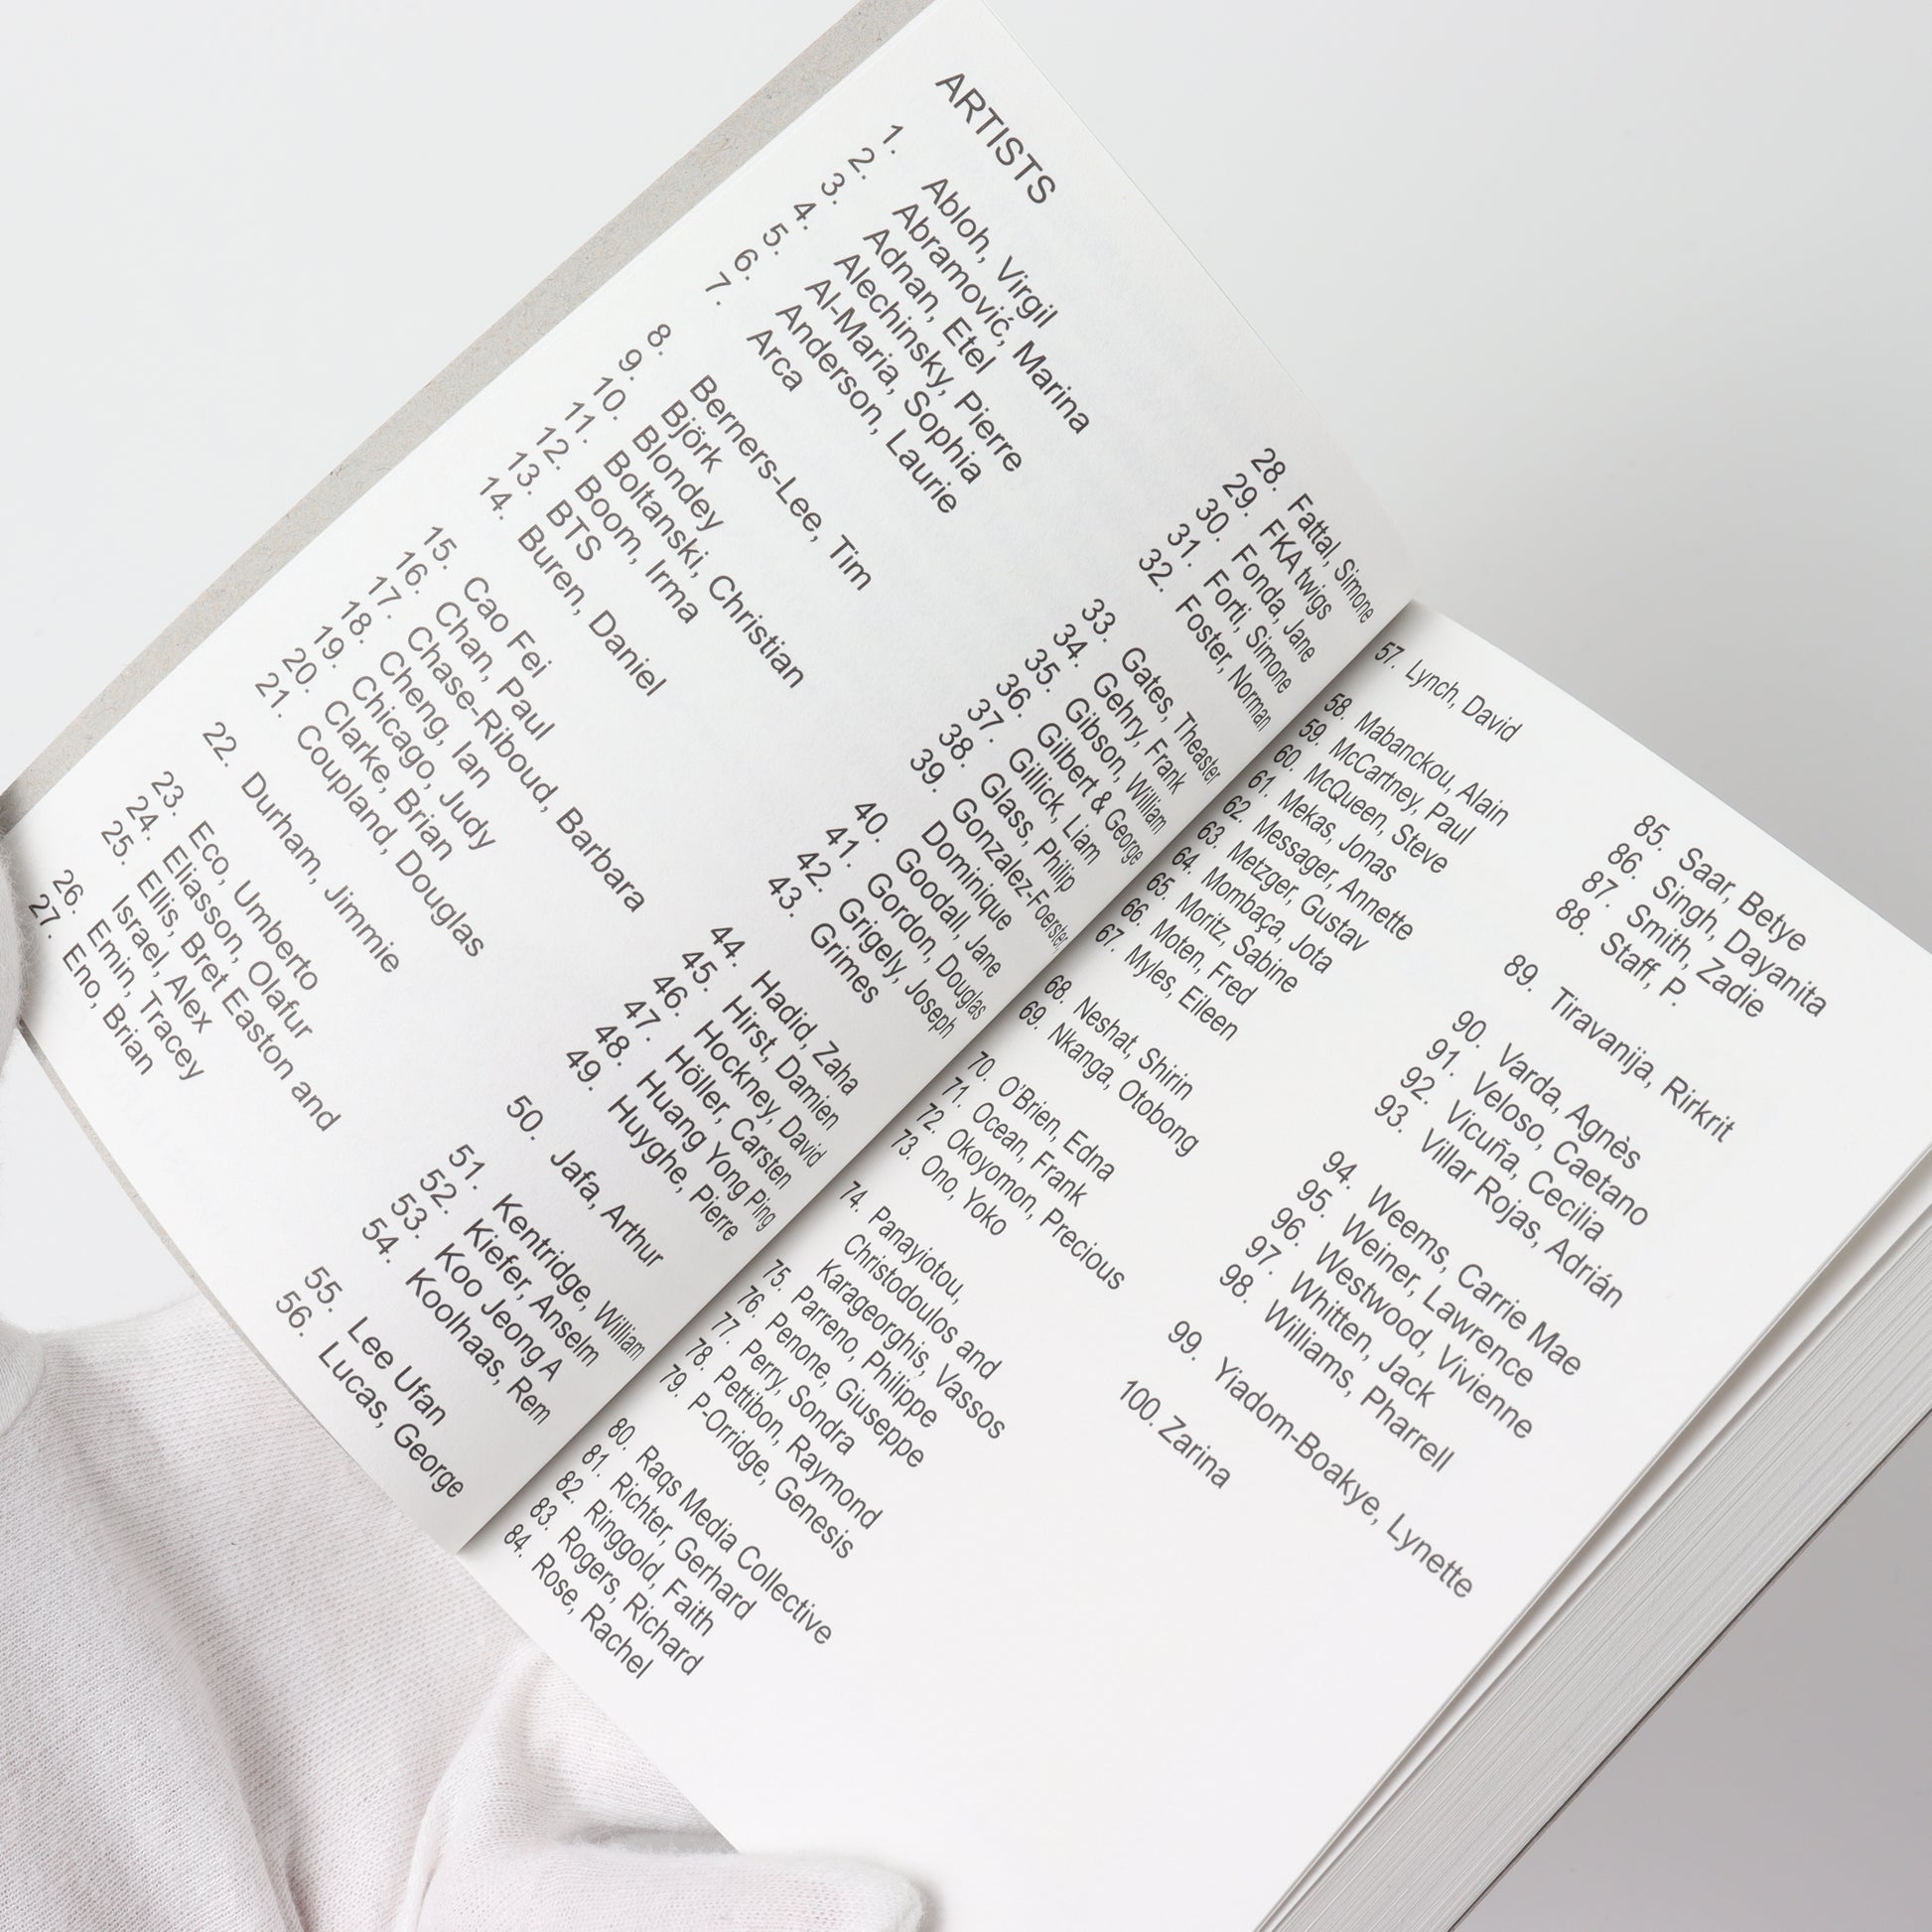 ARTISTS
1. Abloh, Virgil
2. Abramović, Marina
3. Adnan, Etel
4. Alechinsky, Pierre
5. Al-Maria, Sophia
6. Anderson, Laurie
7. Arca
8. Berners-Lee, Tim
9. Björk
10. Blondey
11. Boltanski, Christian
12. Boom, Irma
13. BTS
14. Buren, Daniel
15. Cao Fei
16. Chan, Paul
17. Chase-Riboud, Barbara
18. Cheng, Ian
19. Chicago, Judy
20. Clarke, Brian
21. Coupland, Douglas
22. Durham, Jimmie
23. Eco, Umberto
24. Eliasson, Olafur
25. Ellis, Bret Easton and
Israel, Alex
26. Emin, Tracey
27. Eno, Brian
28. Fattal, Simone
29. FKA twigs
30. Fonda, Jane
31. Forti, Simone
32. Foster, Norman
33. Gates, Theaster
34. Gehry, Frank
35. Gibson, William
36. Gilbert & George
37. Gillick, Liam
38. Glass, Philip
39. Gonzalez-Foerster,
Dominique
40. Goodall, Jane
41. Gordon, Douglas
42. Grigely, Joseph
43. Grimes
44. Hadid, Zaha
45. Hirst, Damien
46. Hockney, David
47. Höller, Carsten
48. Huang Yong Ping
49. Huyghe, Pierre
50. Jafa, Arthur
51. Kentridge, William
52. Kiefer, Anselm
53. Koo Jeong A
54. Koolhaas, Rem
55. Lee Ufan
56. Lucas, George
57. Lynch, David
58. Mabanckou, Alain
59. McCartney, Paul
60. McQueen, Steve
61. Mekas, Jonas
62. Messager, Annette
63. Metzger, Gustav
64. Mombaça, Jota
65. Moritz, Sabine
66. Moten, Fred
67. Myles, Eileen
68. Neshat, Shirin
69. Nkanga, Otobong
70. O'Brien, Edna
71. Ocean, Frank
72. Okoyomon, Precious
73. Ono, Yoko
74. Panayiotou,
Christodoulos and
Karageorghis, Vassos
75. Parreno, Philippe
76. Penone, Giuseppe
77. Perry, Sondra
78. Pettibon, Raymond
79. P-Orridge, Genesis
80. Raqs Media Collective
81. Richter, Gerhard
82. Ringgold, Faith
83. Rogers, Richard
84. Rose, Rachel
85. Saar, Betye
86. Singh, Dayanita
87. Smith, Zadie
88. Staff, P.
89. Tiravanija, Rirkrit
90. Varda, Agnès
91. Veloso, Caetano
92. Vicuña, Cecilia
93. Villar Rojas, Adrián
94. Weems, Carrie Mae
95. Weiner, Lawrence
96. Westwood, Vivienne
97. Whitten, Jack
98. Williams, Pharrell
99. Yiadom-Boakye, Lynette
100. Zarina